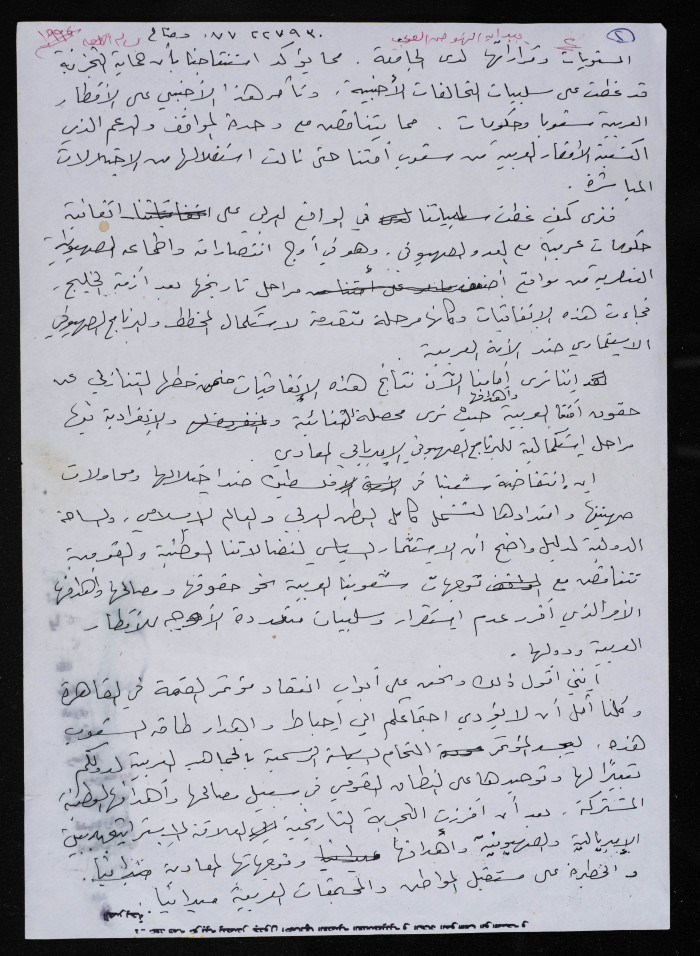 ٢٢٧٩٣٠ ٠٧٧
المستويات وقراراتها لدى الجامعة. مما يؤكد استنتاجنا بأن حماية التجزئة
قد غطت على سلبيات التحالفات الأجنبية، وتآمر هذا الأجنبي على الأقطار
العربية شعوبا وحكومات. مما يتناقض مع وحدة المواقف والدعم الذي
اكتسبته الأقطار العربية من شعوب أمتنا حتى نالت استقلالها من الاحتلالات
المباشرة.
فنرى كيف غطت سلبياتنا في الواقع العربي على اتفاقية
حكومات عربية مع العدو الصهيوني، وهو في أوج انتصاراته وأطماعه الصهيونية
العنصرية من مواقع مراحل تاريخها بعد أزمة الخليج،
فجاءت هذه الاتفاقيات وكأنها مرحلة متقدمة لاستكمال المخطط والبرنامج الصهيوني
الاستعماري ضد الأمة العربية.
إننا نرى أمامنا الآن نتائج هذه الاتفاقيات ضمن خطها التنازلي عن
حقوق أمتنا العربية وأهدافها حيث نرى محصلة الثنائية والانفرادية فيها
مراحل استكمالية للبرنامج الصهيوني الامبريالي المعادي.
إن انتفاضة شعبنا في فلسطين ضد احتلالها ومحاولات
صهينتها وامتدادها لتشمل كامل الوطن العربي والعالم الاسلامي، والساحة
الدولية لدليل واضح أن الاستثمار السياسي لنضالاتنا الوطنية والقومية
تتناقض مع توجهات شعوبنا العربية نحو حقوقها ومصالحها وأهدافها
الأمر الذي أفرز عدم استقرار وسلبيات متعددة الأوجه للأقطار
العربية ودولها.
إنني أقول ذلك ونحن على أبواب انعقاد مؤتمر القمة في القاهرة
وكلنا أمل أن لا يؤدي اجتماعكم الى إحباط وإهدار طاقة الشعوب
هذه، المؤتمر التحام السلطة الرسمية بالجماهير العربية لدولكم
تعبيرا لها وتوحيدها على النطاق القومي في سبيل مصالحها وأهدافها الوطنية
المشتركة. بعد أن أفرزت التجربة التاريخية العلاقة الاستراتيجية بين
الامبريالية والصهيونية وأهدافها وتوجهاتها المعادية
والخطرة على مستقبل المواطن والمجتمعات العربية ميدانيا.